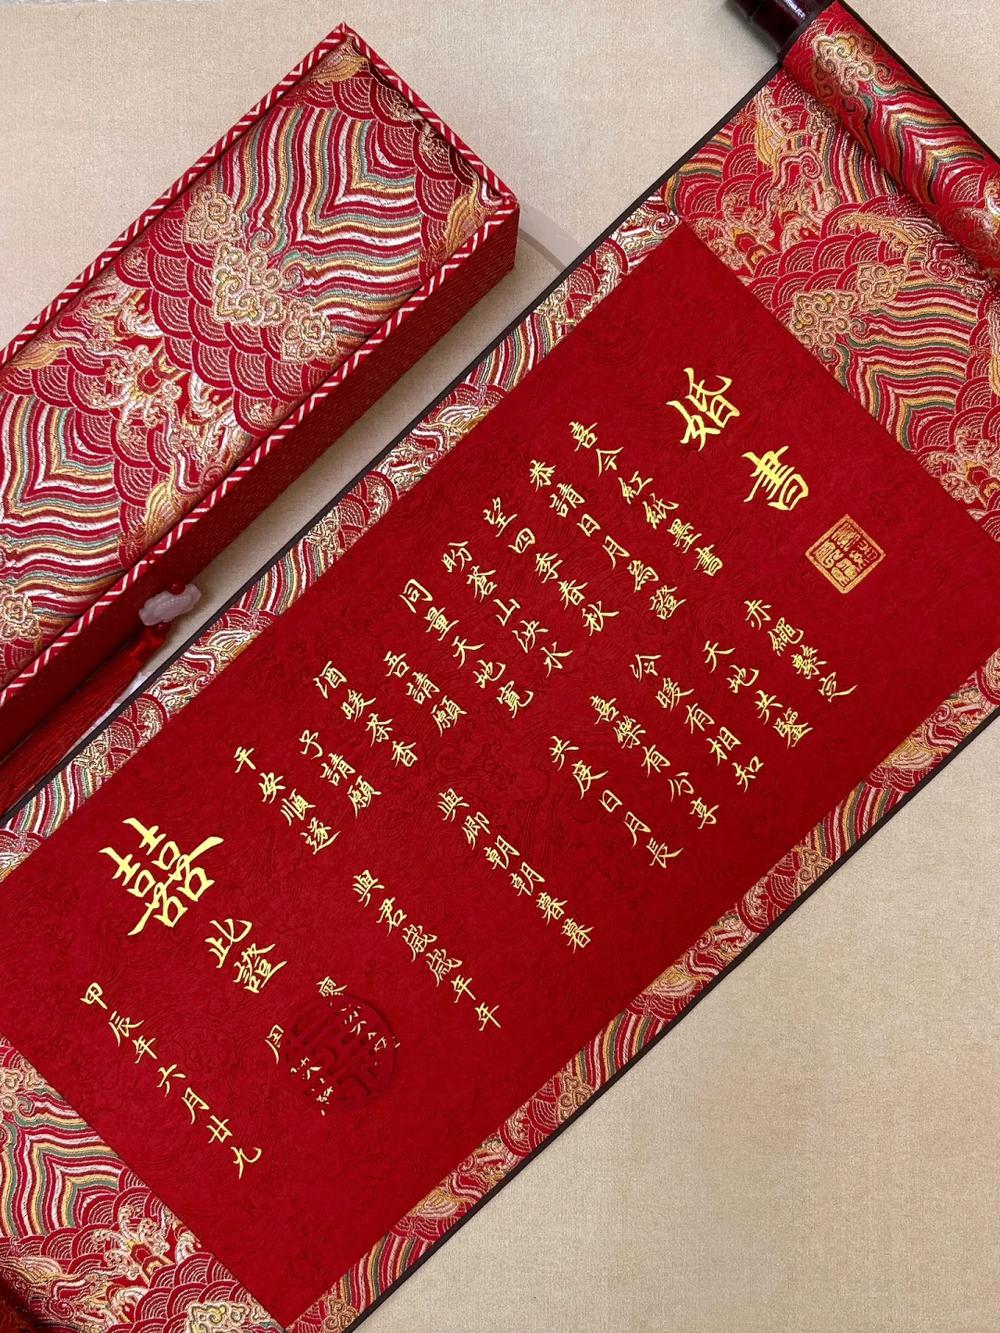 婚書
喜今紅紙墨書 赤繩繫定
恭請日月為證 天地共鑒
望四季春秋 冷暖有相知
盼蒼山泱水 喜樂有分享
同量天地寬 共度日月長
吾請願
酒暖茶香 與卿朝朝暮暮
予請願
平安順遂 與君歲歲年年
囍
此證
周
甲辰年六月廿九